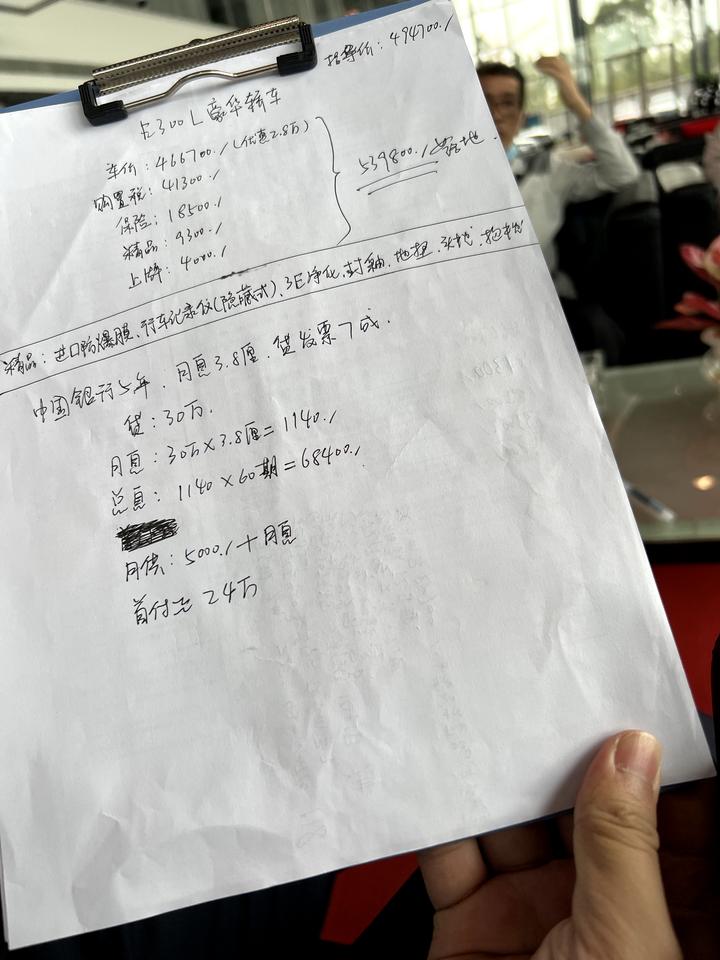 指导价：494700./
E300L豪华轿车
车价：466700./（优惠2.8万）
购置税：41300./
保险：18500./
精品：9300./
上牌：4000./
539800./落地.
精品：进口防爆膜、行车记录仪(隐藏式)、3E净化、封釉、地毯、头枕、抱枕
中国银行5年、月息3.8厘、贷发票7成.
贷：30万.
月息：30万×3.8厘=1140./
总息：1140×60期=68400./
月供：5000./+月息
首付款 24万